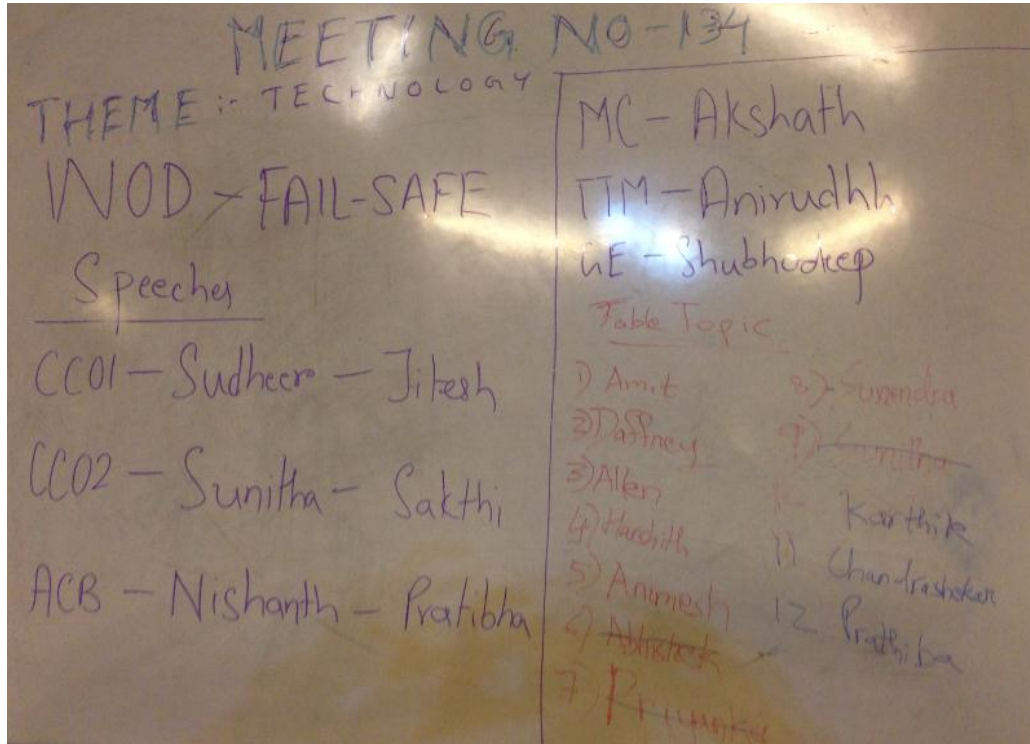 MEETING NO-134
THEME:- TECHNOLOGY
WOD - FAIL-SAFE
Speeches
CC01 - Sudheer - Jitesh
CC02 - Sunitha - Sakthi
ACB - Nishanth - Pratibha
MC - Akshath
TTM - Anirudhh
GE - Shubhodeep
Table Topic
1) Amit
2) Daffney
3) Allen
4) Harshith
5) Animesh
6) Abhishek
7) Priyanka
8) Surendra
9) Sunitha
10 Karthik
11 Chandrashekar
12 Prathiba